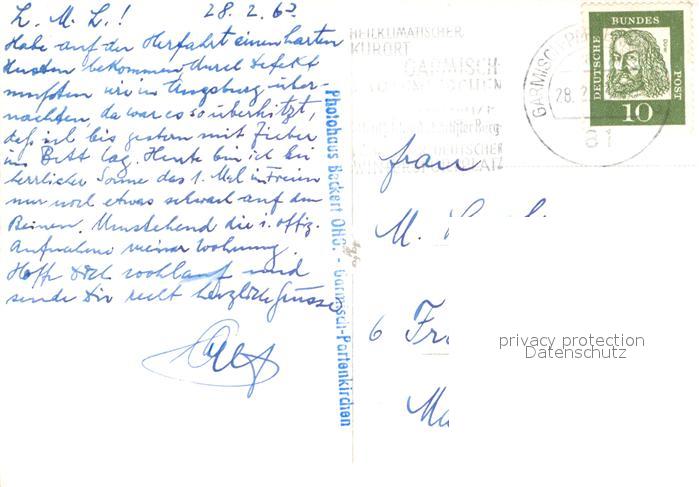 L. M. L.! 28.2.63
Habe auf der Herfahrt einen harten
Husten bekommen, durch Defekt
mußten wir in Augsburg über-
nachten, da war es so überhitzt,
daß ich bis gestern mit Fieber
im Bett lag. Heute bin ich bei
herrlicher Sonne das 1. Mal im Freien
nur noch etwas schwach auf den
Beinen. Umstehend die 1. offiz.
Aufnahme meiner Wohnung.
Hoffe Dich wohlauf und
sende Dir recht herzliche Grüsse
Photohaus Beckert OHG. - Garmisch-Partenkirchen
HEILKLIMATISCHER
KURORT
GARMISCH
DEUTSCHER
WINTERSPORTPLATZ
GARMISCH-PA
28.2
DEUTSCHE BUNDES POST
10
Frau
M.
6 Fr
privacy protection
Datenschutz